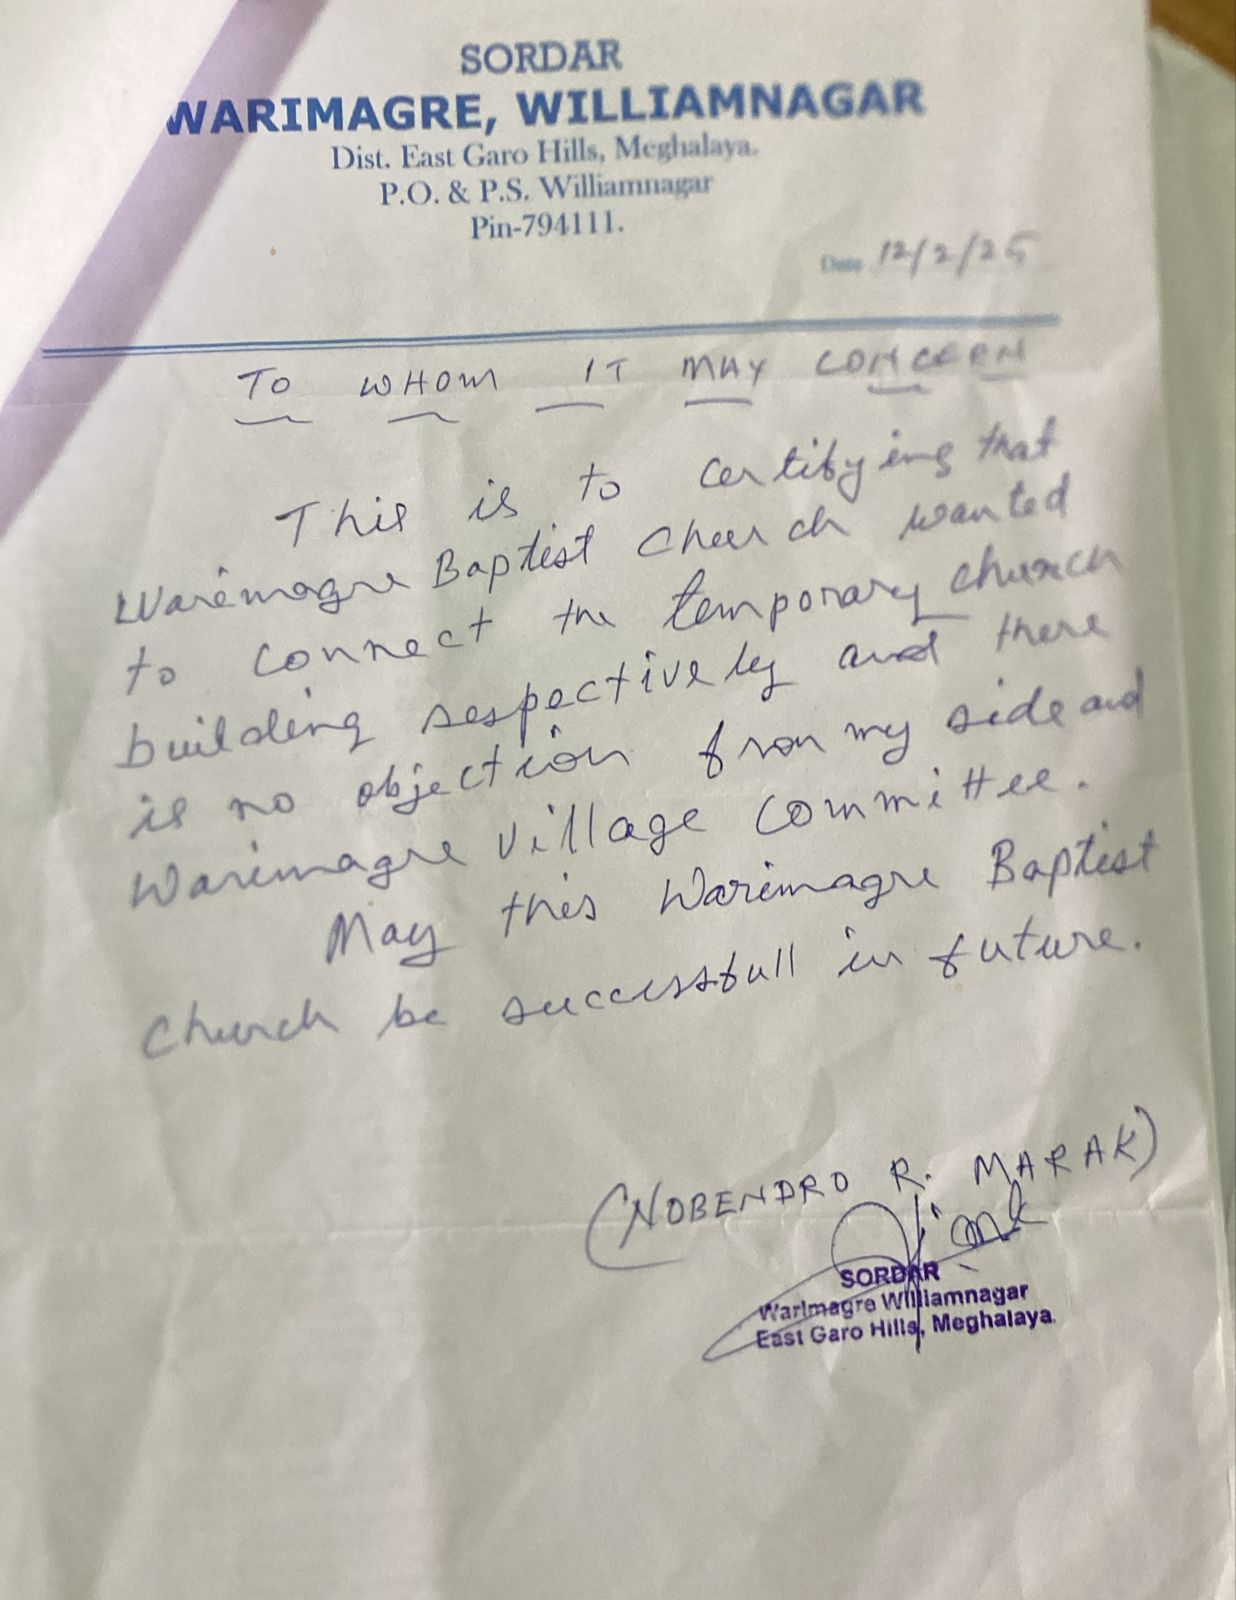 SORDAR
WARIMAGRE, WILLIAMNAGAR
Dist. East Garo Hills, Meghalaya.
P.O. & P.S. Williamnagar
Pin-794111.
Date 12/2/25
TO WHOM IT MAY CONCERN
This is to certifying that
Warimagre Baptist Church wanted
to connect the temporary church
building respectively and there
is no objection from my side and
Warimagre Village Committee.
May this Warimagre Baptist
Church be successfull in future.
(NOBENDRO R. MARAK)
SORDAR
Warimagre Williamnagar
East Garo Hills, Meghalaya.